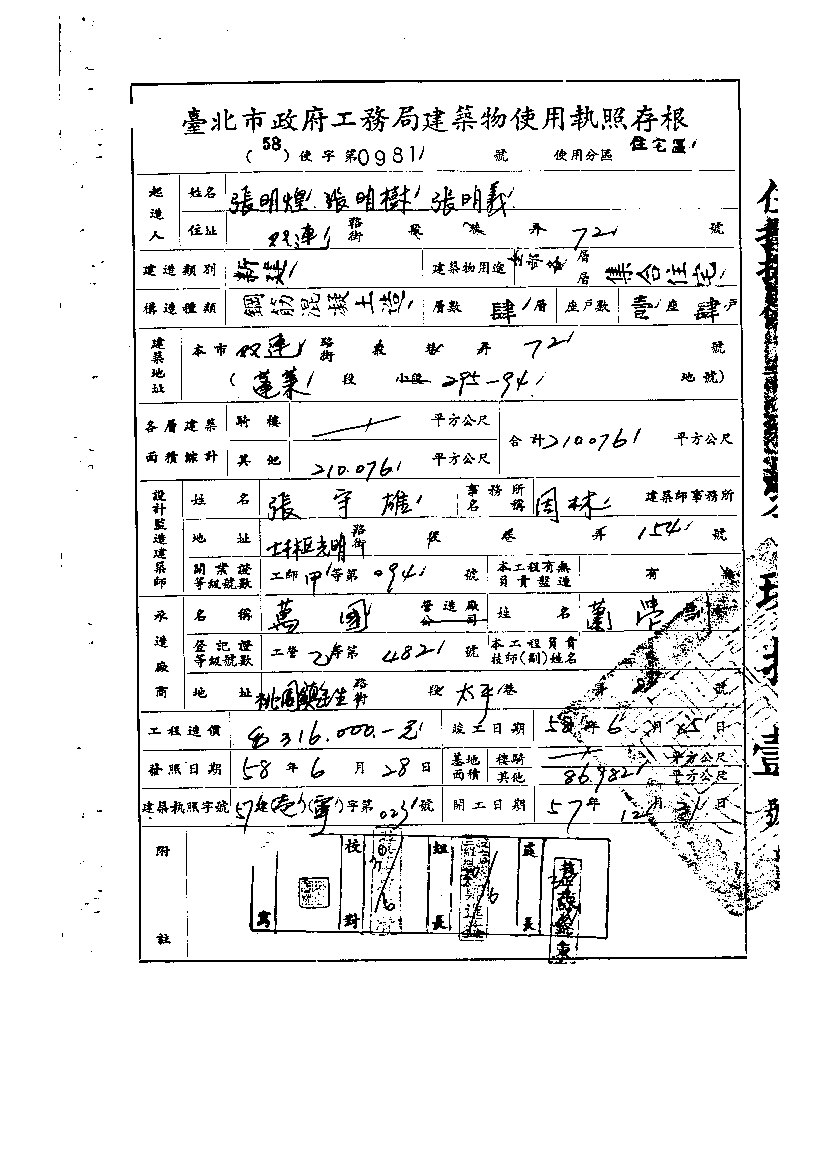 臺北市政府工務局建築物使用執照存根
(58)使字第0981號 使用分區 住宅區
起造人 姓名 張明煌 張明樹 張明義
住址 双連 路街 段 巷 弄 72 號
建造類別 新建 建築物用途 全部 層 層 集合住宅
構造種類 鋼筋混凝土造 層數 肆層 座戶數 座 肆戶
建築地址 本市 双連 路街 段 巷 弄 72 號
(蓬萊 段 小段 295-94 地號)
各層建築面積總計 騎樓 平方公尺 合計 210.076 平方公尺
其他 210.076 平方公尺
設計監造建築師 姓名 張守雄 事務所名稱 周林 建築師事務所
地址 士林區光明 路街 段 巷 弄 154 號
開業證等級號數 工師 甲 等第 094 號 本工程有無負責監造 有
承造廠商 名稱 萬國 營造廠公司 姓名 蕭榮
登記證等級號數 工營 乙 等第 482 號 本工程負責技師(副)姓名
地址 桃園鎮民生 路街 段 太平 巷 弄 號
工程造價 316.000.-元 竣工日期 58年6月 日
發照日期 58年6月28日 基地面積 樓騎 平方公尺
其他 86.982 平方公尺
建築執照字號 57建(壱)(寧)字第023號 開工日期 57年12月 日
附註 寫 校對 組長 處長